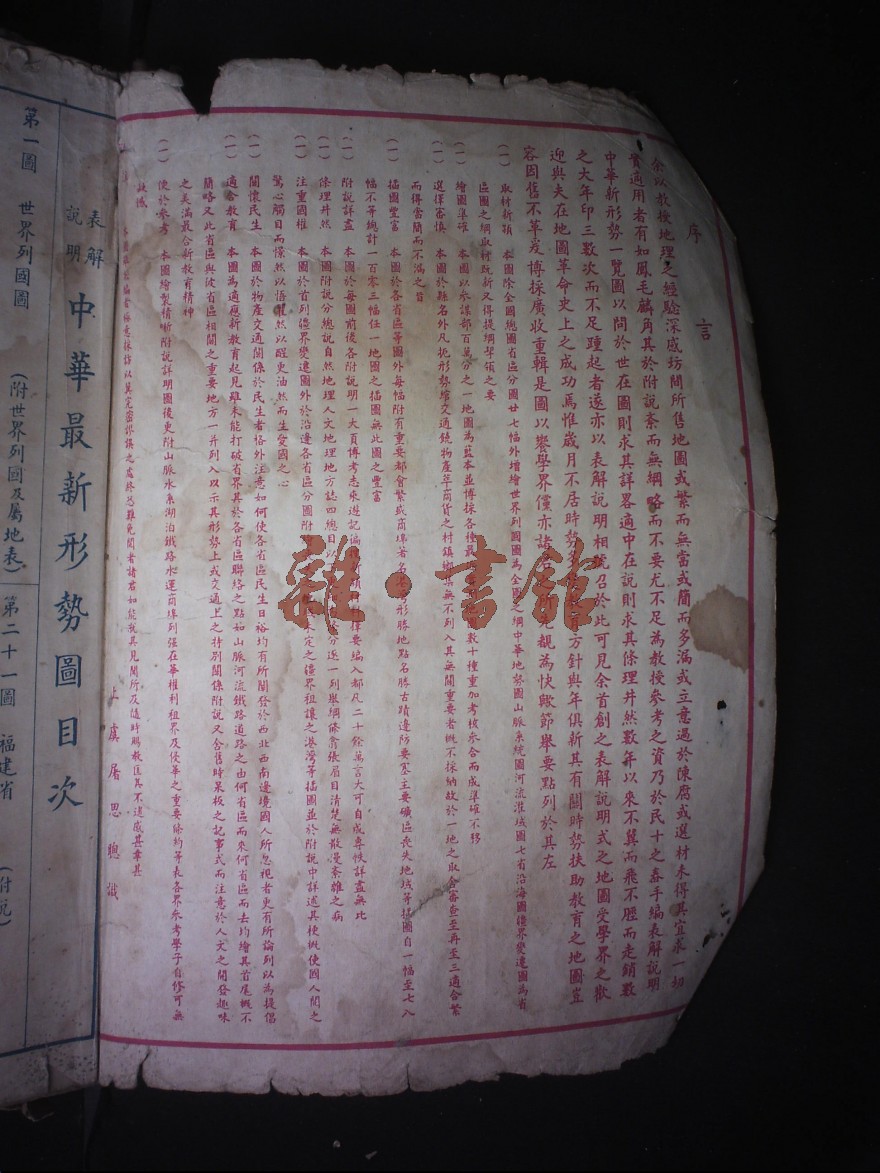 序言
余以教授地理之經驗深感坊間所售地圖或繁而無當或簡而多漏或立意過於陳腐或選材未得其宜求一切
實適用者有如鳳毛麟角其於附說紊而無綱略而不要尤不足為教授參考之資乃於民十之春手編表解說明
中華新形勢一覽圖以問於世在圖則求其詳畧適中在說則求其條理井然數年以來不翼而飛不脛而走銷數
之大年印三數次而不足踵起者遂亦以表解說明相號召於此可見余首創之表解說明式之地圖受學界之歡
迎與夫在地圖革命史上之成功焉惟歲月不居時勢 方針與年俱新其有關時勢扶助教育之地圖豈
容因舊不革爰博採廣收重輯是圖以饗學界僅亦諸 覩為快歟節舉要點列於其左
(一) 取材新穎 本圖除全國總圖省區分圖廿七幅外增繪世界列國圖為全國之綱中華地勢圖山脈系統圖河流淮域圖七省沿海圖疆界變遷圖為省
區圖之綱取材既新又得提綱挈領之要
(一) 繪圖準確 本圖以水謀部百萬分之一地圖為藍本並博採各種最 數十種重加考核參合而成準確不移
(一) 選擇審慎 本圖於縣名外凡扼形勢綰交通饒物產萃商貨之村鎮 無不列入其無關重要者概不採納故於一地之取舍審查至再至三適合繁
而得當簡而不漏之旨
(一) 插圖豐富 本圖於各省區等圖外每幅附有重要都會繁盛商埠著名 形勝地點名勝古蹟邊防要塞主要礦區喪失地域等插圖自一幅至七八
幅不等總計一百零三幅任一地圖之插圖無此圖之豐富
(一) 附說詳盡 本圖於每圖前後各附說明一大頁博考志乘遊記 擇要編入都凡二十餘萬言大可自成專帙詳盡無比
(一) 條理井然 本圖附說分總說自然地理人文地理地方誌四總目以 分送一列舉綱條俞張眉目清楚無散漫紊雜之病
(一) 注重國權 本圖於首列疆界變遷圖外於沿邊各省區分圖附 未定之疆界租讓之港灣等插圖並於附說中詳述其梗概使國人閱之
驚心觸目而慄然以悟 然以醒更油然而生愛國之心
(一) 關懷民生 本圖於物產交通關係於民生者格外注意如何使各省區民生日裕均有所闡發於西北西南邊境國人所忽視者更有所論列以為提倡
(一) 適合教育 本圖為適應新教育起見雖未能打破省界其於各省區聯絡之點如山脈河流鐵路道路之由何省區而來何省區而去均繪其首尾概不
簡略又此省區與彼省區相關之重要地方一并列入以示其形勢上或交通上之特別關係附說又舍舊時呆板之記事式而注意於人文之開發趣味
之美滿最合新教育精神
(一) 便於參考 本圖繪製精晰附說詳明圖後更附山脈水系湖泊鐵路水運商埠列强在華權利租界及侵華之重要條約等表各界參考學子自修可無
缺憾
本圖 編者 意採訪以其完密 之處終恐難免閱者諸君如能就其見聞所及隨時賜教匡其不逮感甚幸甚
上虞屠思聰識
表解
說明
中華最新形勢圖目次
第一圖 世界列國圖 (附世界列國及屬地表)
第二十一圖 福建省 (附說)
雜·書館